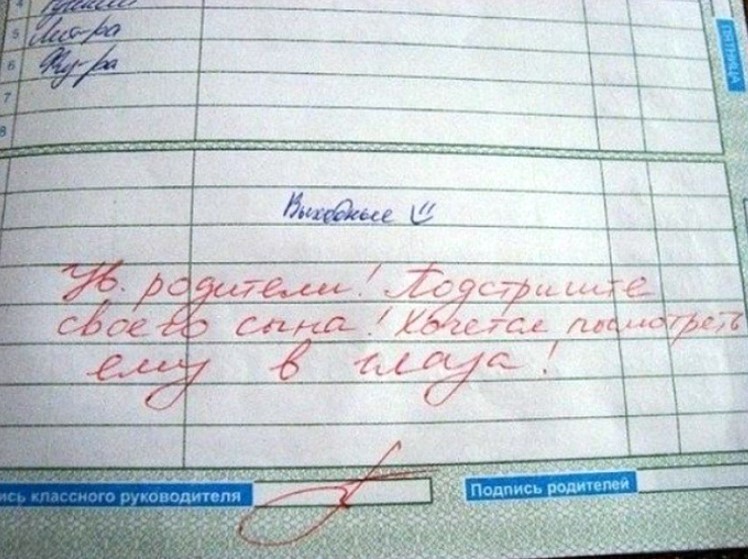 4
5 Лит-ра
6 Физ-ра
7
8
ПЯТНИЦА
Выходные
Ув. родители! Подстригите
своего сына! Хочется посмотреть
ему в глаза!
ись классного руководителя
Подпись родителей